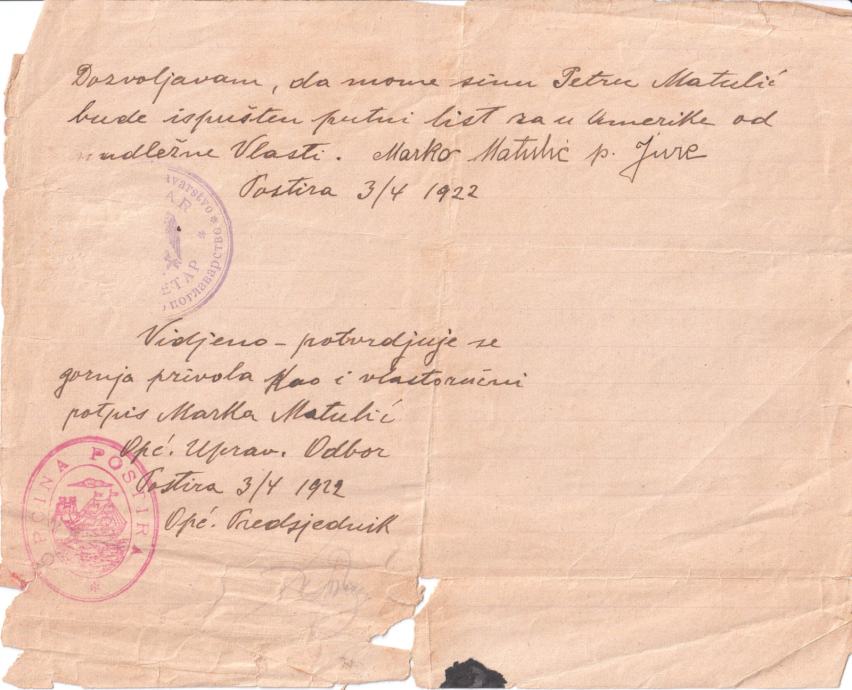 Dozvoljavam, da mome sinu Petru Matulić
bude ispušten putni list za u Amerike od
nadležne Vlasti. Marko Matulić p. Jure
Postira 3/4 1922
avarstvo
AR
ETAP
поглаварство
Vidjeno - potvrdjuje se
gornja privola kao i vlastoručni
potpis Marka Matulić
Opć. Uprav. Odbor
Postira 3/4 1922
Opć. Predsjednik
OPĆINA POSTIRA